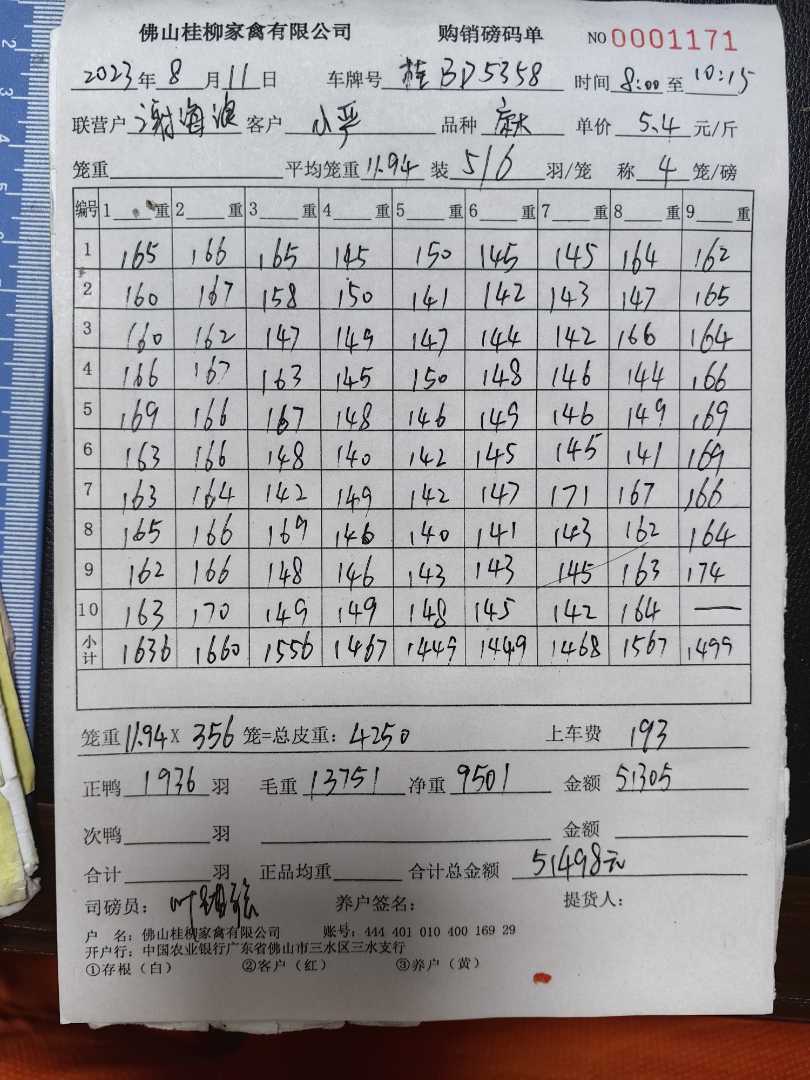 佛山桂柳家禽有限公司 购销磅码单 NO 0001171
2023年8月11日 车牌号 桂BD5358 时间 8:00至10:15
联营户 谢海浪 客户 小严 品种 麻 单价 5.4 元/斤
笼重 平均笼重 11.94 装 5/6 羽/笼 称 4 笼/磅
编号 1 重 2 重 3 重 4 重 5 重 6 重 7 重 8 重 9 重
1 165 166 165 145 150 145 145 164 162
2 160 167 158 150 141 142 143 147 165
3 160 162 147 149 147 144 142 166 164
4 166 167 163 145 150 148 146 144 166
5 169 166 167 148 146 149 146 149 169
6 163 166 148 140 142 145 145 141 169
7 163 164 142 149 142 147 171 167 166
8 165 166 169 146 140 141 143 162 164
9 162 166 148 146 143 143 145 163 174
10 163 170 149 149 148 145 142 164 —
小计 1636 1660 1556 1467 1449 1449 1468 1567 1499
笼重 11.94 X 356 笼=总皮重：4250 上车费 193
正鸭 1936 羽 毛重 13751 净重 9501 金额 51305
次鸭 羽 金额
合计 羽 正品均重 合计总金额 51498元
司磅员： 养户签名： 提货人：
户 名：佛山桂柳家禽有限公司 账号：444 401 010 400 169 29
开户行：中国农业银行广东省佛山市三水区三水支行
①存根（白） ②客户（红） ③养户（黄）